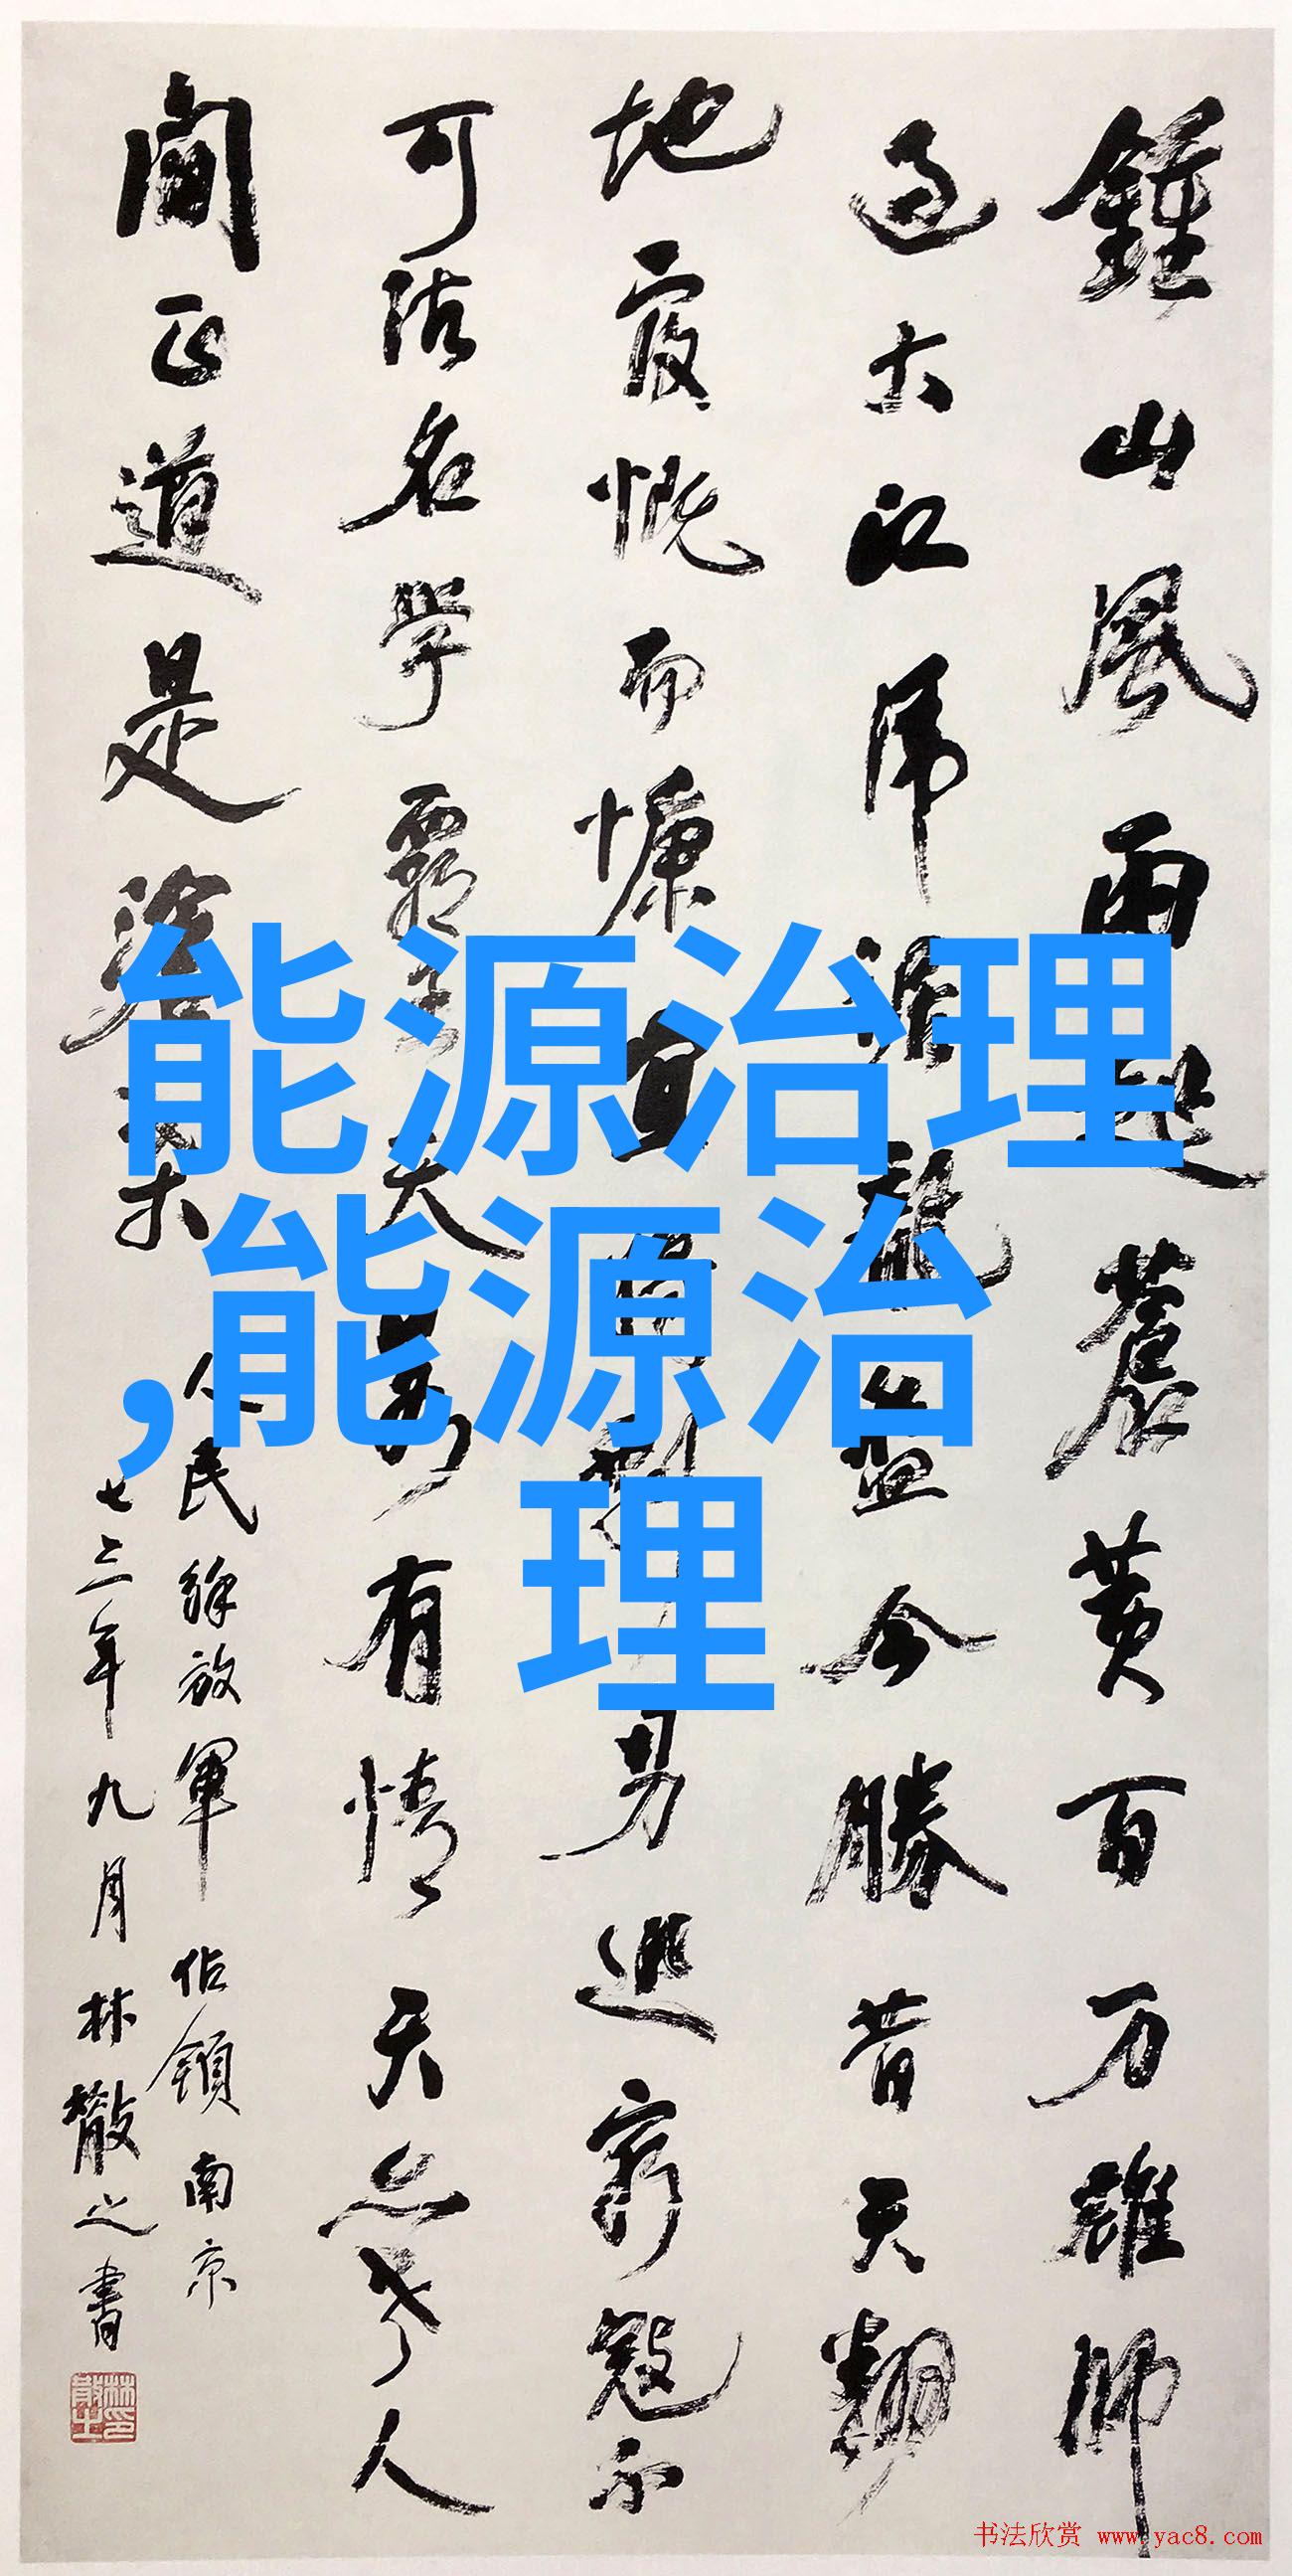 能源治理
,能源治
理
鍾山風雨起蒼黄百万雄師
过大江虎踞龍盘今勝昔天翻
地覆慨而慷宜将剩勇追窮寇不
可沽名學霸王天若有情天亦老人
间正道是滄桑
人民解放軍佔領南京
七三年九月林散之書
书法欣赏 www.yac8.com